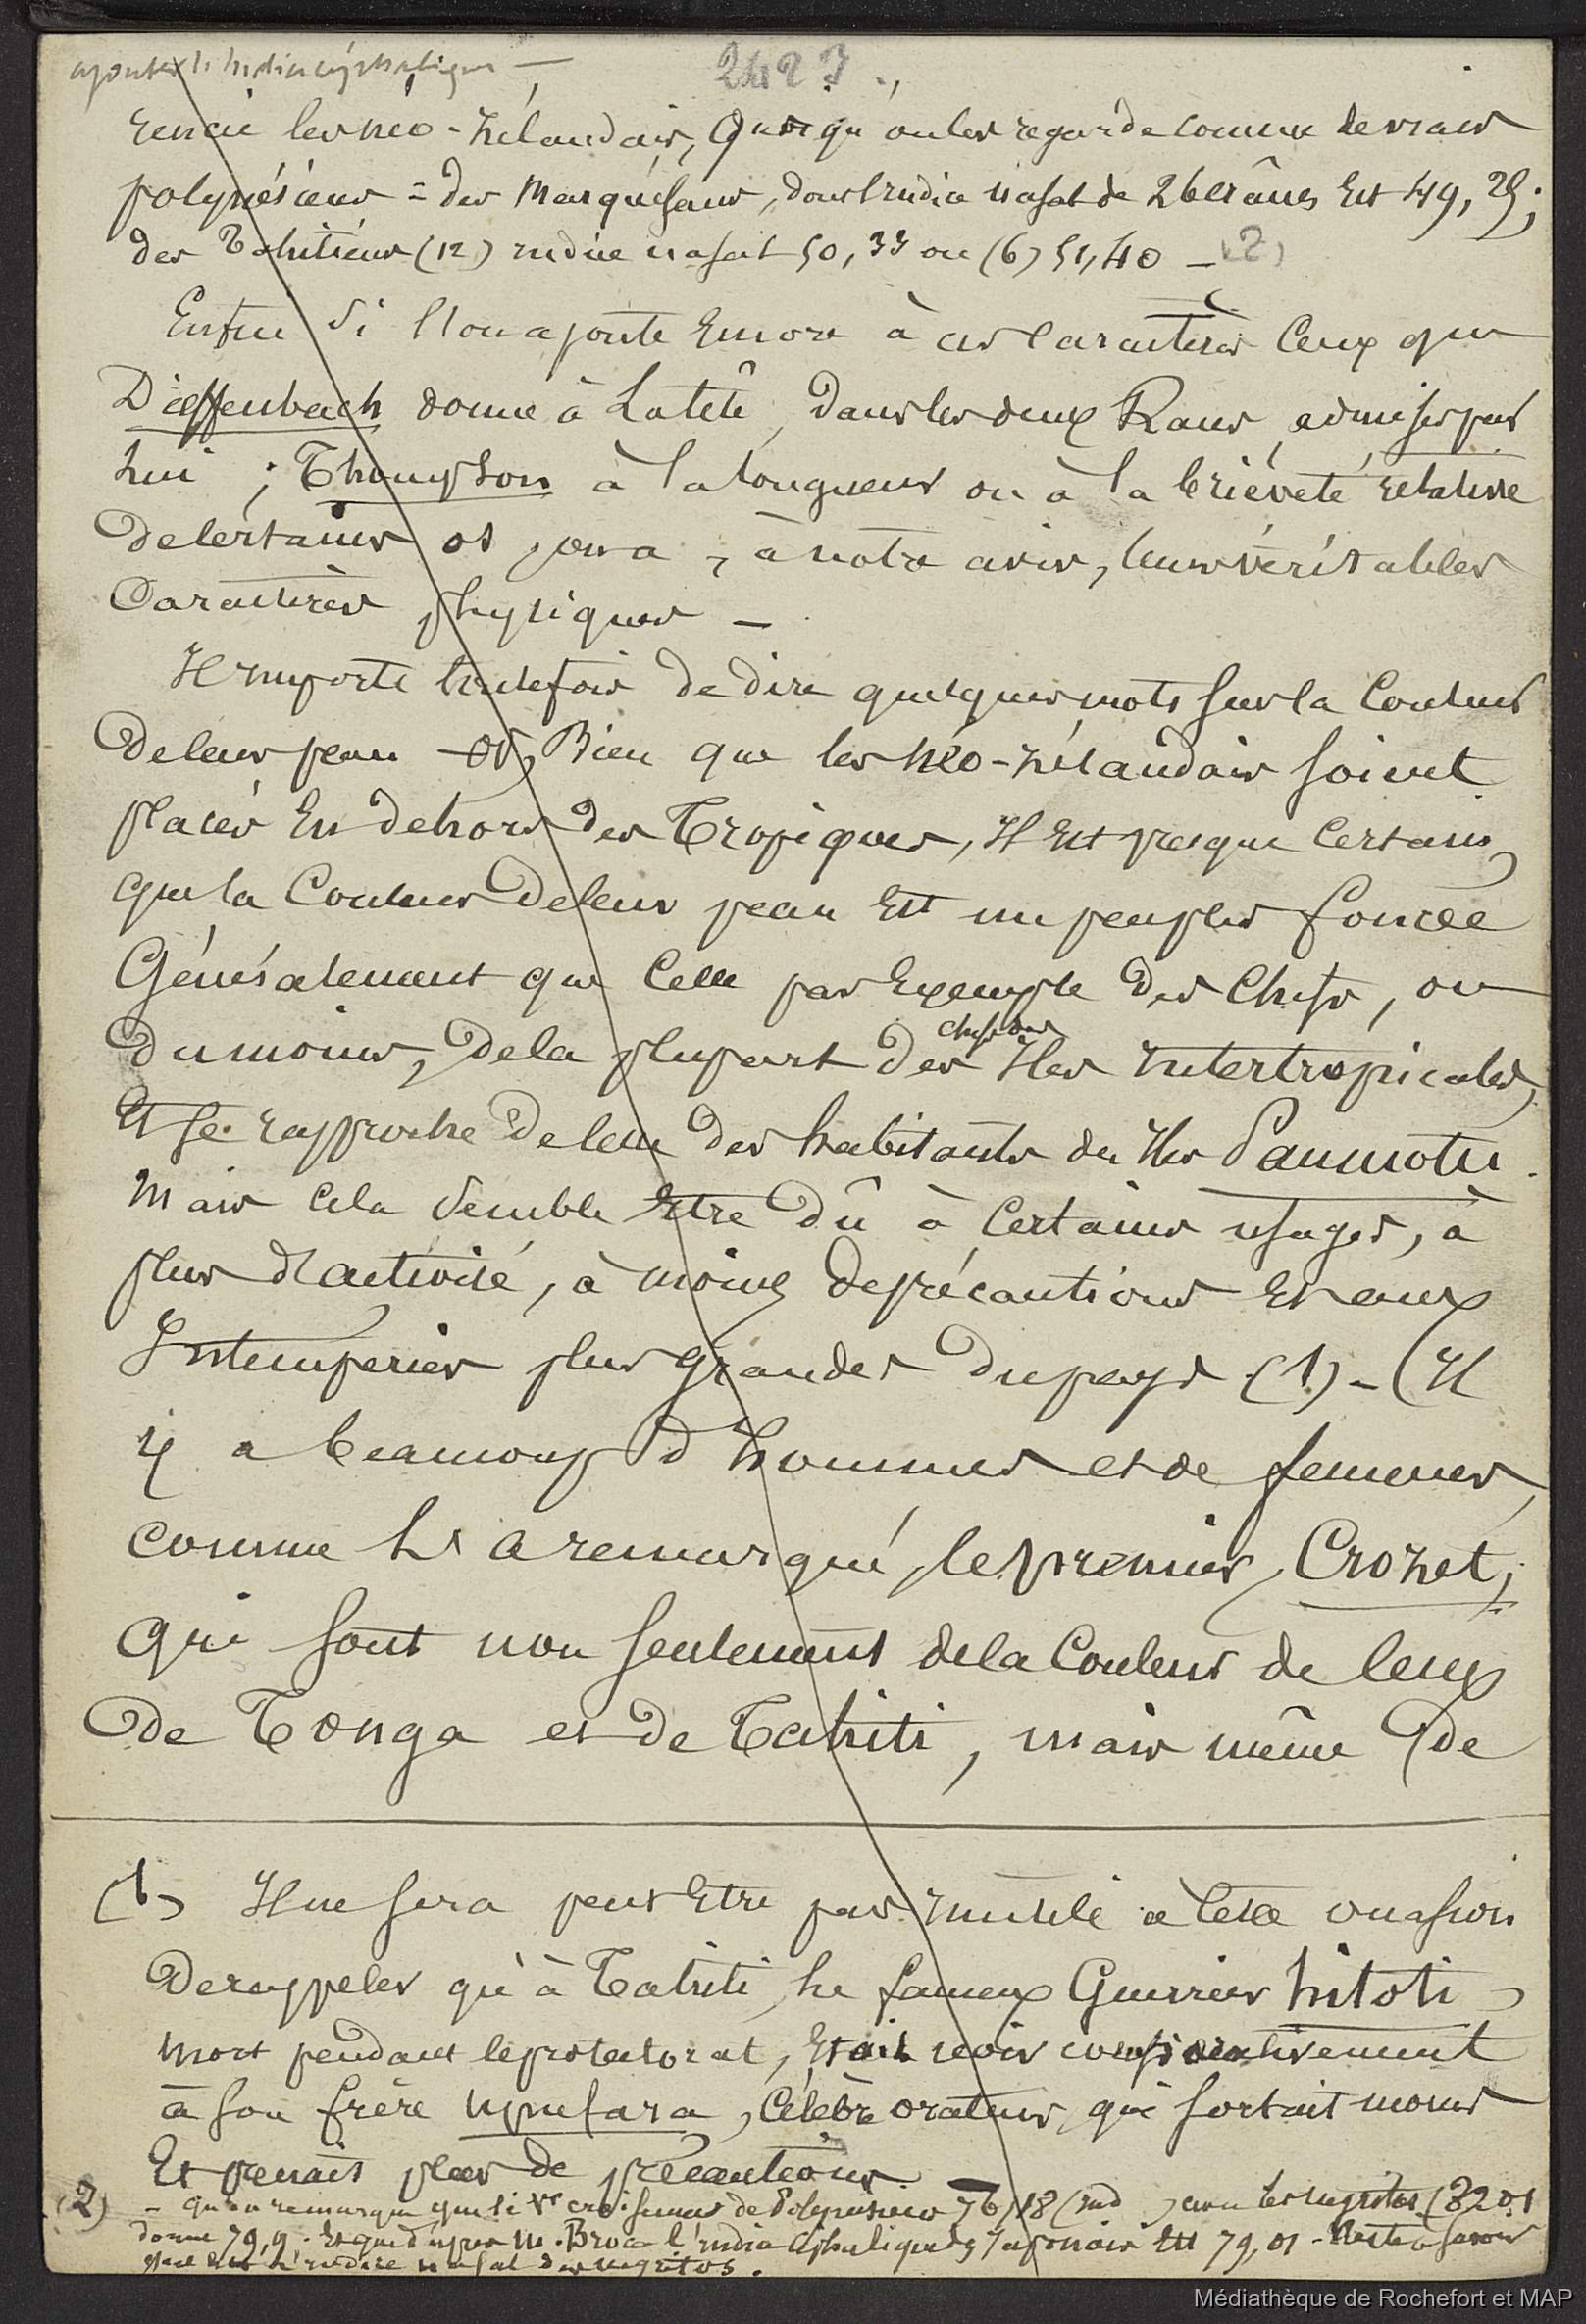 ajouter l'indice céphalique —
2427.
les néo-zélandais, quoiqu'on les regarde comme de vrais
polynésiens = des Marquésans, dont l'indice nasal de 26 crânes est 49, 25;
des Tahitiens (12) indice nasal 50, 33 ou (6) 51, 40 — (2)
Enfin si l'on ajoute encore à ces caractères ceux que
Dieffenbach donne à la tête, dans les deux Races admises par
lui ; Thompson à la longueur ou à la brièveté relative
de certains os, on a, à notre avis, leurs véritables
Caractères physiques —
Il importe toutefois de dire quelques mots sur la Couleur
de leur peau — Or, Bien que les néo-zélandais soient
placés En dehors des Tropiques, Il Est presque Certain
que la Couleur de leur peau Est un peu plus foncée
Généralement que Celle par Exemple des Chefs, ou
du moins, de la plupart des Iles Intertropicales,
chefs des
Et se rapproche de celle des habitants des Iles Paumotu.
Mais cela semble Etre dû à Certains usages, à
plus d'activité, à moins de précautions Et aux
Intempéries plus grandes du pays (1) - (Il
y a beaucoup d'hommes et de femmes,
comme l'a remarqué, le premier, Crozet;
qui sont non seulement de la Couleur de ceux
de Tonga et de Tahiti, mais même de
(1) Il ne sera peut Etre pas inutile à cette occasion
de rappeler qu'à Tahiti, le fameux Guerrier hitoti
mort pendant le protectorat, Etait noir comparativement
à son frère , Célèbre orateur, qui sortait moins
Et prenait plus de précautions
(2) - qu'on remarque que le de Polynésien 76,18 (ind les negritos (8201
donne 79,9. Et que d'après M. Broca l'indice céphalique des Japonais Est 79,01 - Reste à savoir
quel est l'indice nasal des negritos.
Médiathèque de Rochefort et MAP